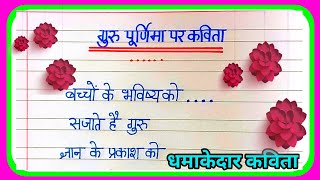 गुरु पूर्णिमा पर कविता
......
बच्चों के भविष्य को ....
सजाते है गुरु
ज्ञान के प्रकाश को
धमाकेदार कविता